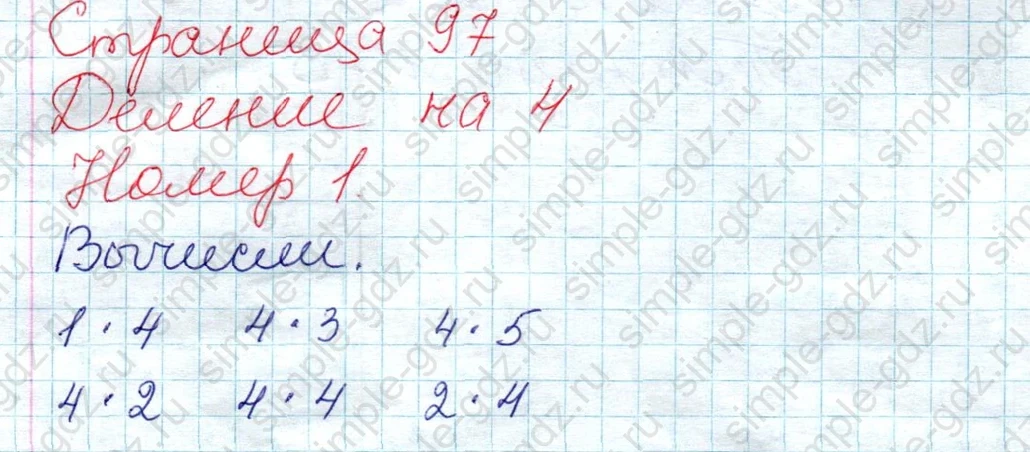 Страница 97
Деление на 4
Номер 1.
Вычисли.
1 · 4 4 · 3 4 · 5
4 · 2 4 · 4 2 · 4
simple-gdz.ru